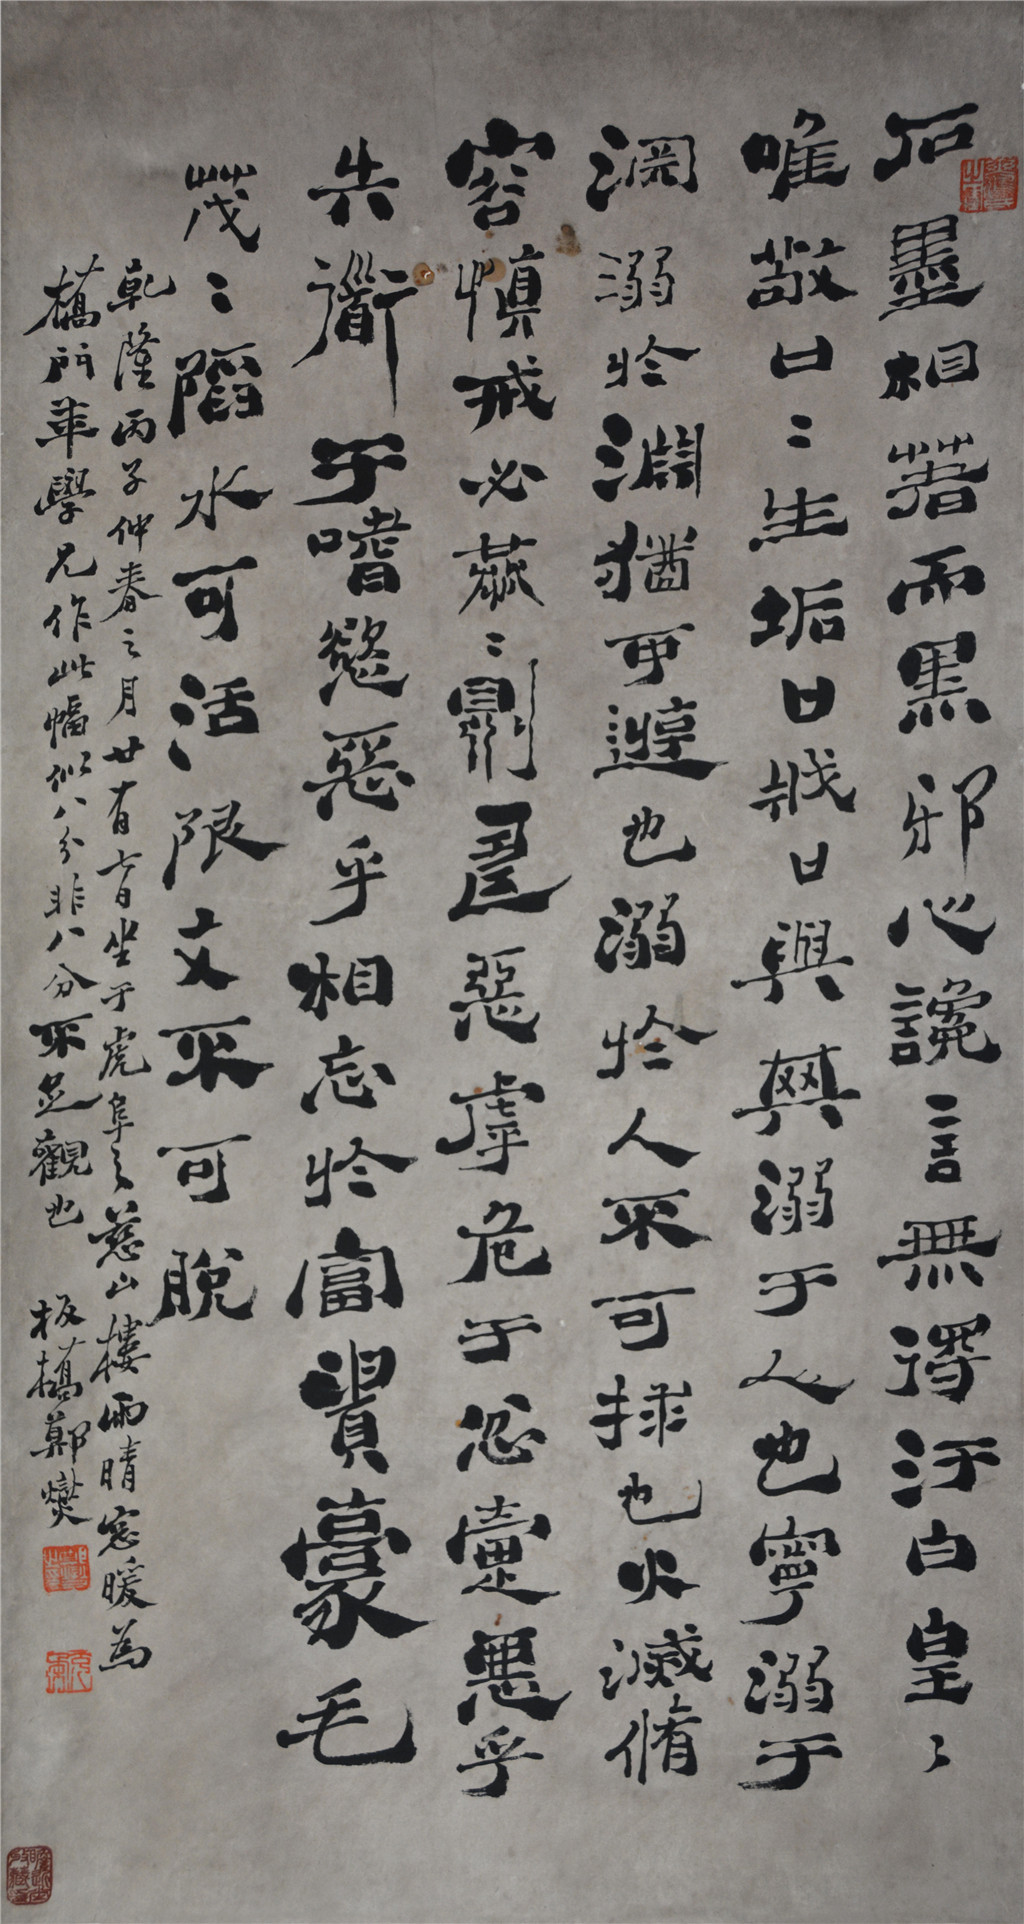 石墨相著而黑邪心讒言無得汙白皇〻
唯敬口〻生垢口戕口與其溺于人也寧溺于
淵溺於淵猶可遊也溺於人不可捄也火滅脩
容慎戒必恭〻則壽惡虖危于忿疐惡乎
失道于嗜慾惡乎相忘於富貴豪毛
茂〻陷水可活限文不可脫
乾隆丙子仲春之月廿有七日坐于虎阜之慈山樓雨晴窓暖為
橋門年學兄作此幅似八分非八分不足觀也 板橋鄭燮